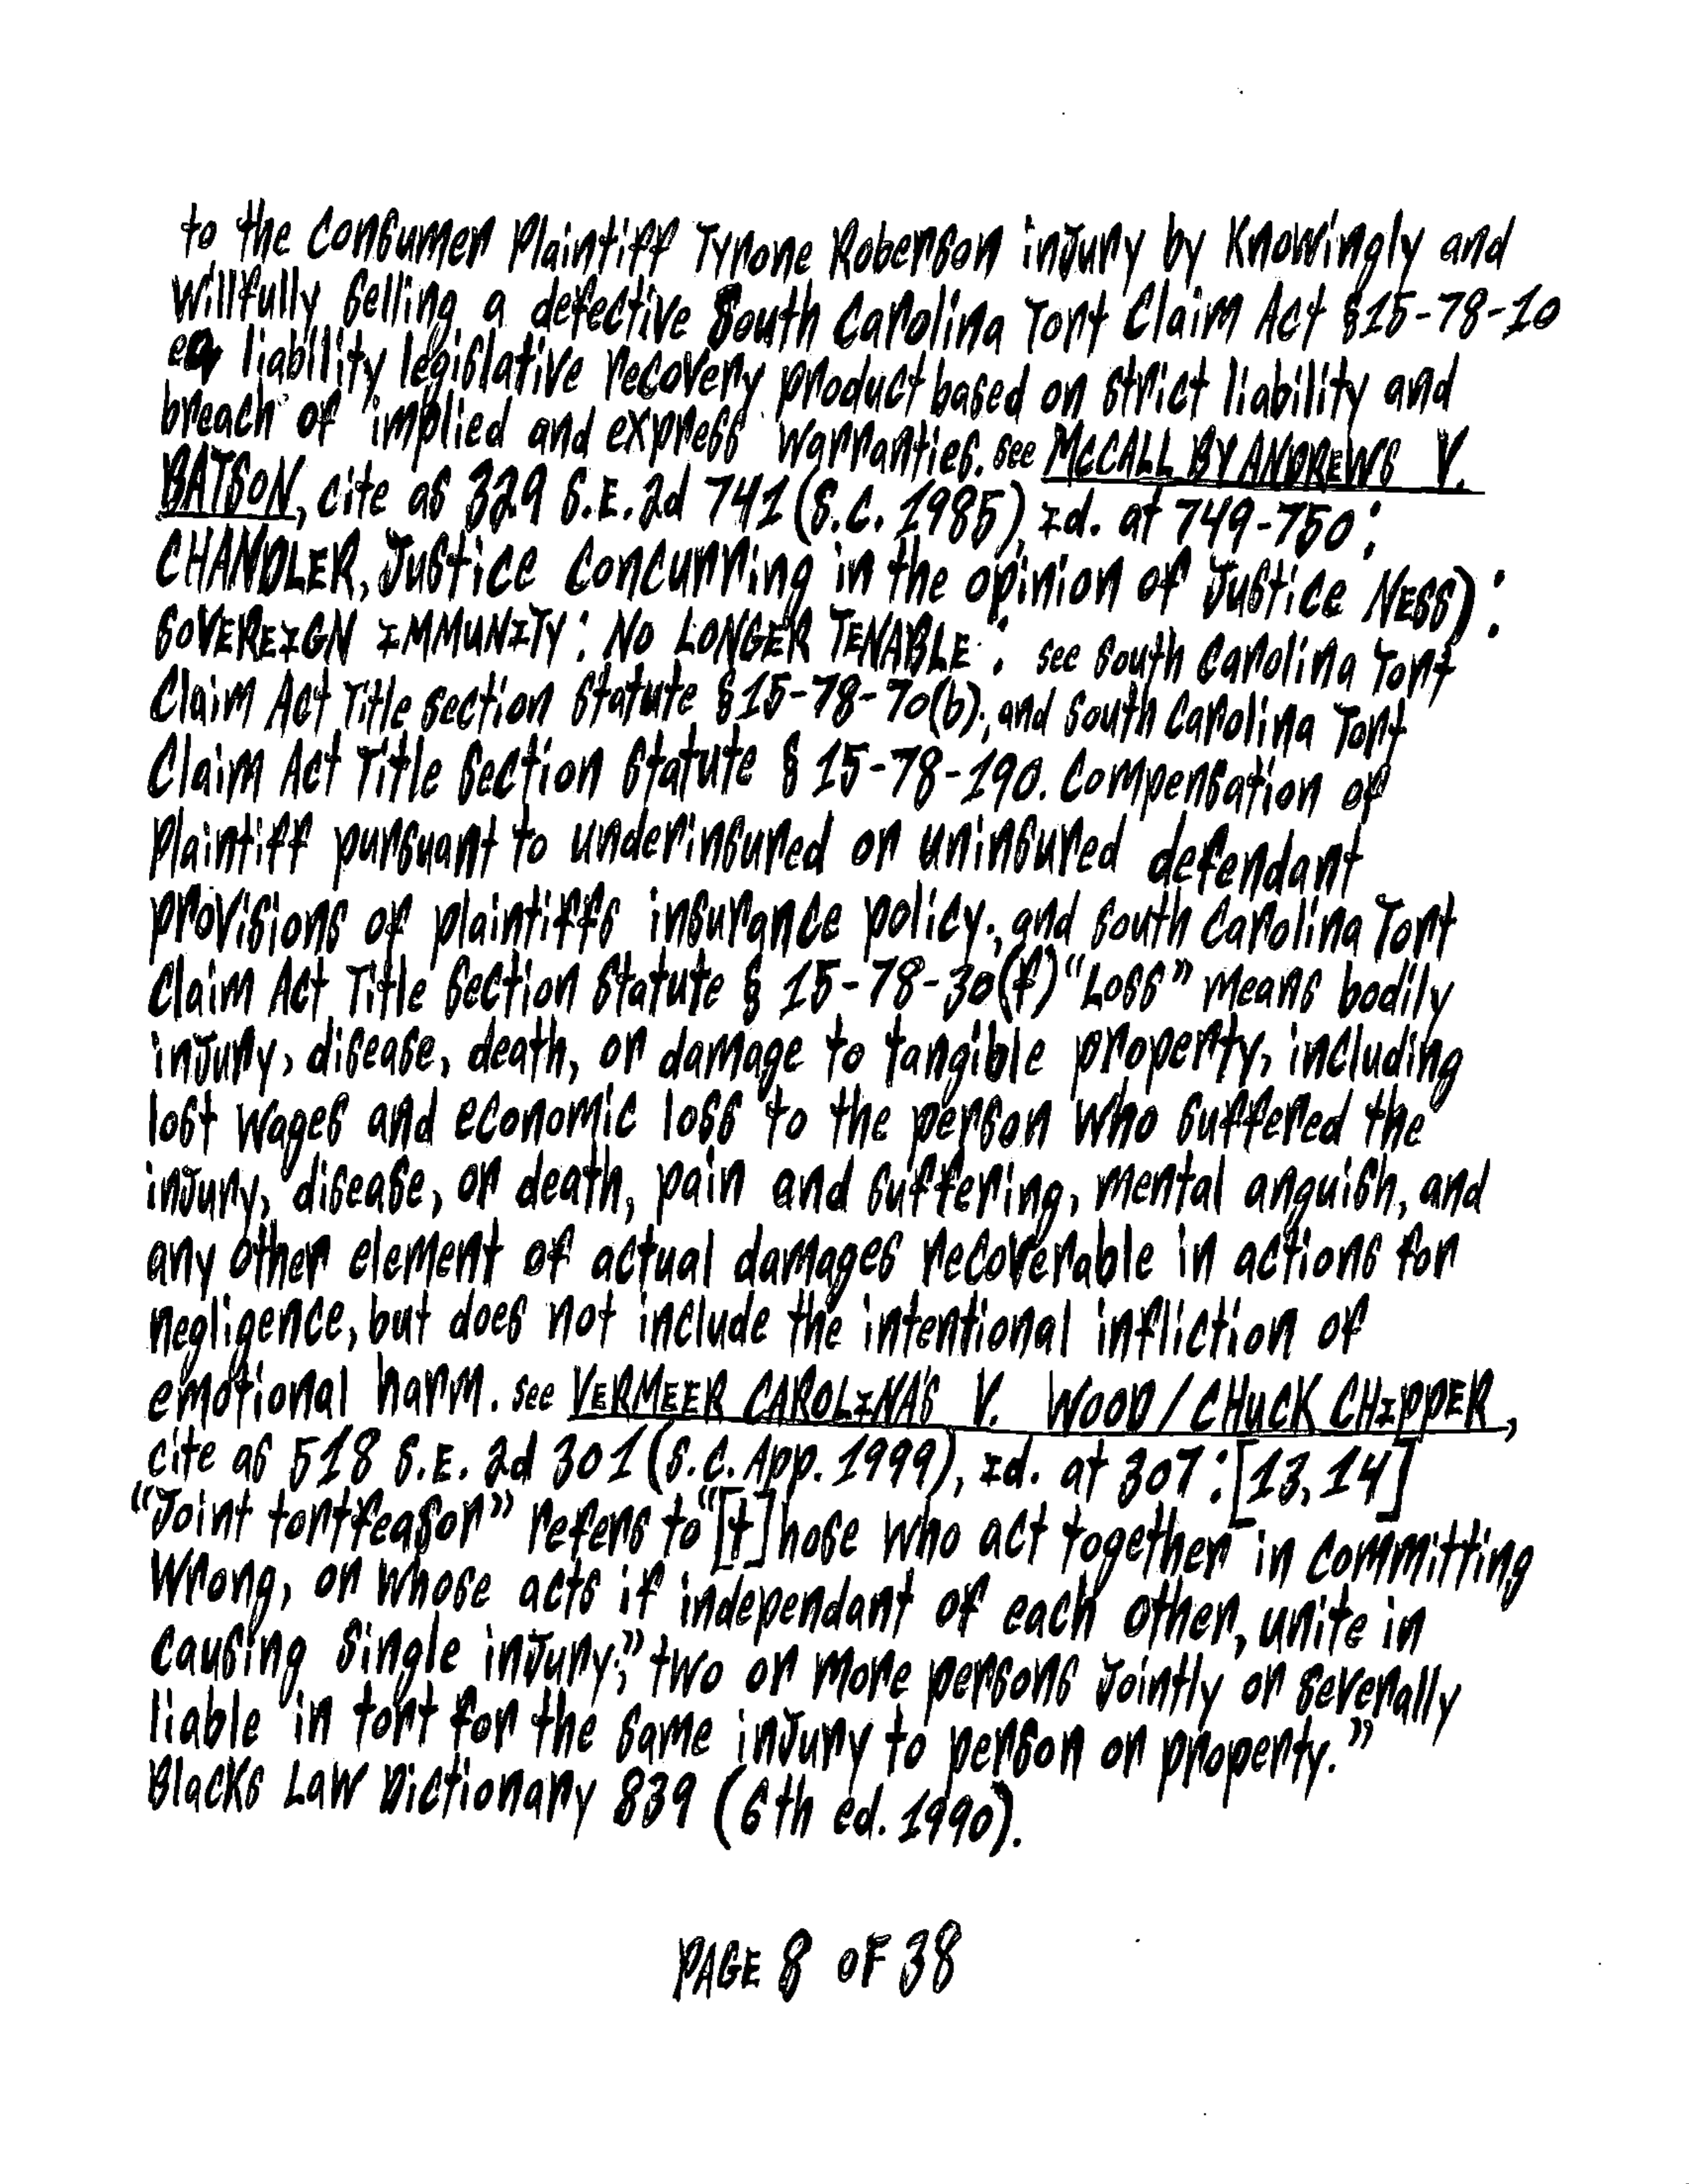 to the consumer Plaintiff Tyrone Roberson injury by Knowingly and
willfully selling a defective South Carolina Tort Claim Act §15-78-10
liability legislative recovery product based on strict liability and
breach of implied and express warranties. see McCALL BY ANDREWS V.
BATSON, cite as 329 S.E.2d 741 (S.C. 1985), Id. at 749-750:
CHANDLER, Justice concurring in the opinion of Justice NESS):
SOVEREIGN IMMUNITY: NO LONGER TENABLE: see South Carolina Tort
Claim Act Title section Statute §15-78-70(b);, and South Carolina Tort
Claim Act Title Section Statute § 15-78-190. Compensation of
Plaintiff pursuant to underinsured or uninsured defendant
provisions of plaintiffs insurance policy., and South Carolina Tort
Claim Act Title Section Statute § 15-78-30(f) "Loss" means bodily
injury, disease, death, or damage to tangible property, including
lost wages and economic loss to the person who suffered the
injury, disease, or death, pain and suffering, mental anguish, and
any other element of actual damages recoverable in actions for
negligence, but does not include the intentional infliction of
emotional harm. see VERMEER CAROLINA'S V. WOOD/CHUCK CHIPPER,
cite as 518 S.E.2d 301 (S.C. App. 1999), Id. at 307: [13,14]
"Joint tortfeasor" refers to "[t]hose who act together in committing
wrong, or whose acts if independant of each other, unite in
causing single injury;" two or more persons jointly or severally
liable in tort for the same injury to person or property."
Blacks Law Dictionary 839 (6th ed. 1990).
PAGE 8 OF 38